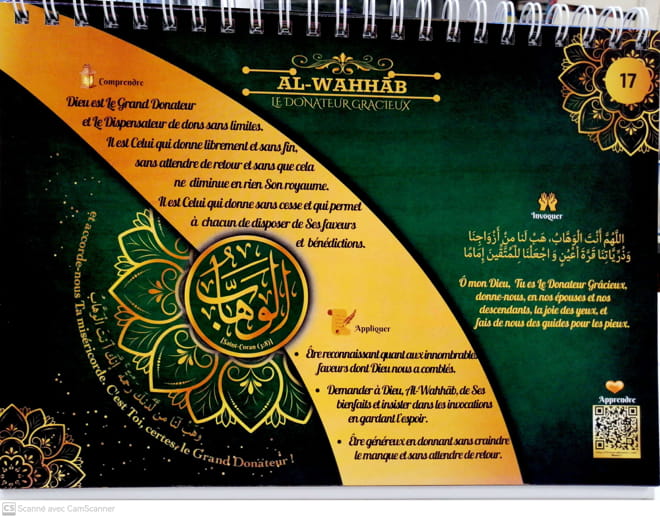 AL-WAHHĀB
LE DONATEUR GRACIEUX
17
Comprendre
Dieu est Le Grand Donateur
et Le Dispensateur de dons sans limites.
Il est Celui qui donne librement et sans fin,
sans attendre de retour et sans que cela
ne diminue en rien Son royaume.
Il est Celui qui donne sans cesse et qui permet
à chacun de disposer de Ses faveurs
et bénédictions.
الوهاب
[Saint-Coran (3:8)]
وَهَبْ لَنَا مِن لَّدُنكَ رَحْمَةً إِنَّكَ أَنتَ الْوَهَّابُ
et accorde-nous Ta miséricorde. C'est Toi, certes, le Grand Donateur !
Appliquer
• Être reconnaissant quant aux innombrables
faveurs dont Dieu nous a comblés.
• Demander à Dieu, Al-Wahhāb, de Ses
bienfaits et insister dans les invocations
en gardant l'espoir.
• Être généreux en donnant sans craindre
le manque et sans attendre de retour.
Invoquer
اللَّهُمَّ أَنْتَ الْوَهَّابُ، هَبْ لَنَا مِنْ أَزْوَاجِنَا
وَذُرِّيَّاتِنَا قُرَّةَ أَعْيُنٍ وَ اجْعَلْنَا لِلْمُتَّقِينَ إِمَامًا
Ô mon Dieu, Tu es Le Donateur Grâcieux,
donne-nous, en nos épouses et nos
descendants, la joie des yeux, et
fais de nous des guides pour les pieux.
Apprendre
CS Scanné avec CamScanner